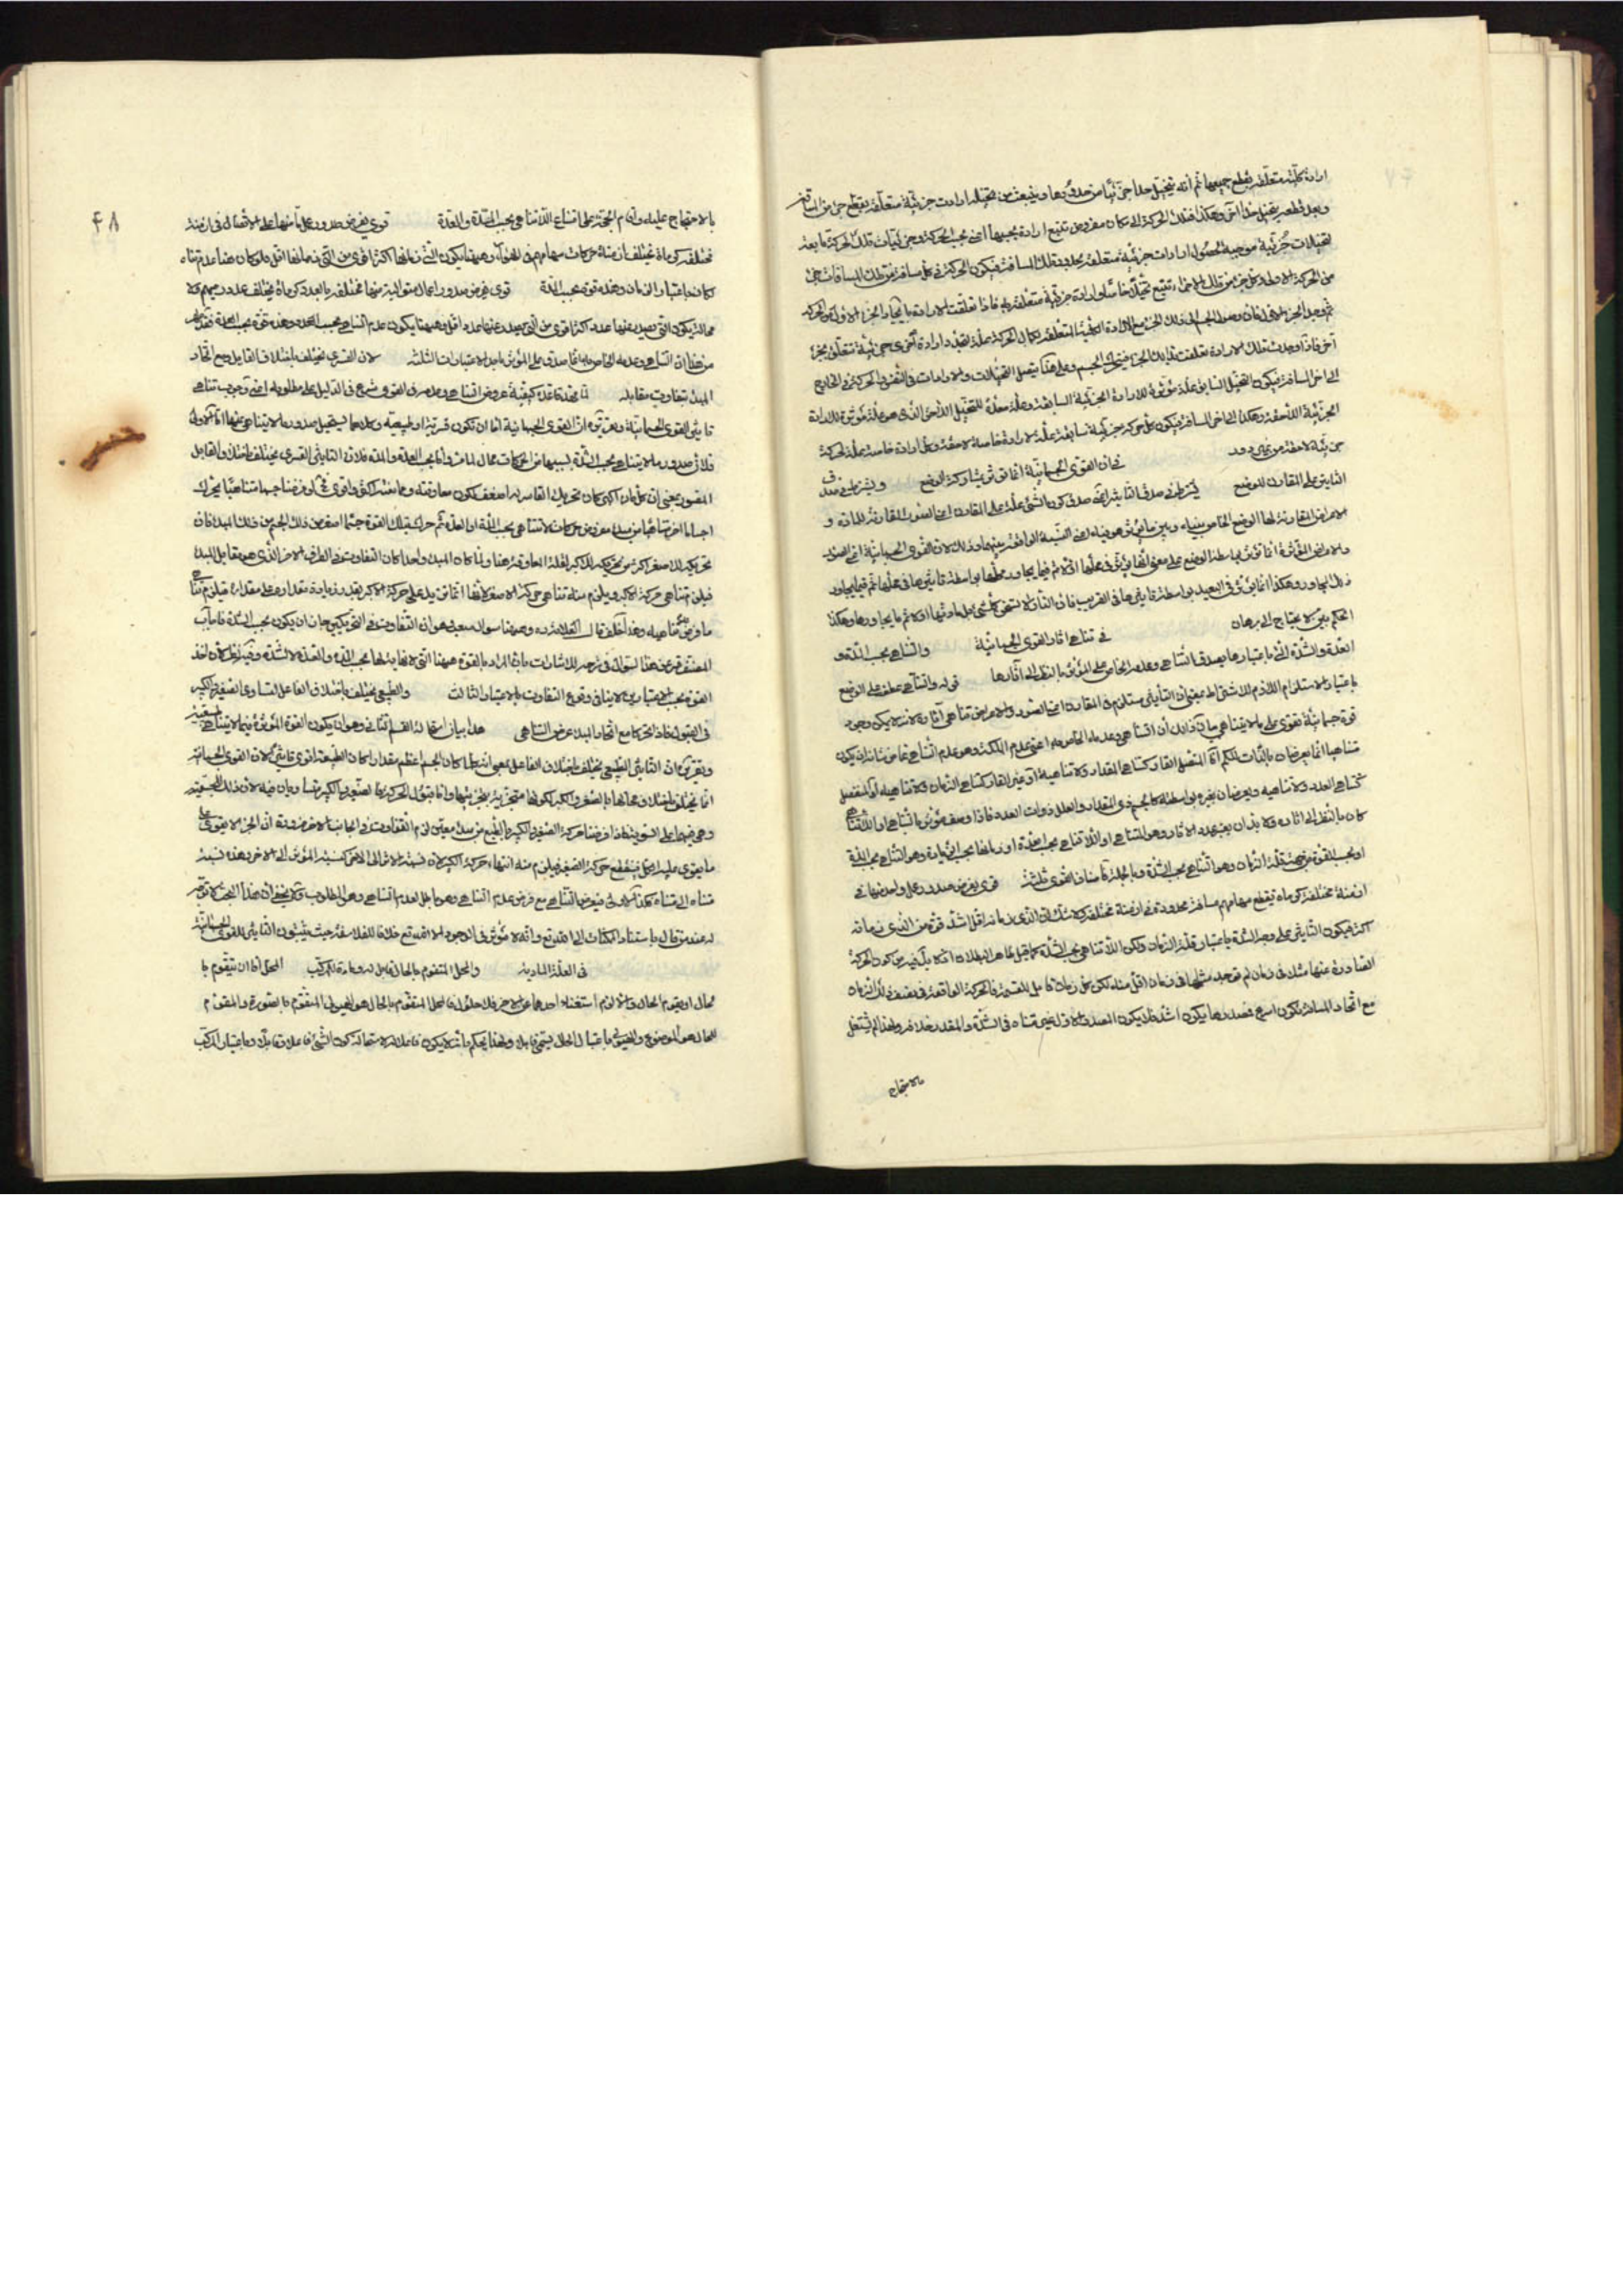 ارادة كلية متعلقة بقطع جميعها ثم انه يتخيل حدا جزئيا من حدودها وينبعث من تخيله ارادات جزئية متعلقة بقطع جزء من المسافة
وبعد قطعه يتخيل حدا آخر وهكذا فتلك الحركة الى مكان مفروض تتبع ارادة بحسبها اعنى بحسب الحركة وجزئيات تلك الحركة تابعة
لتخيلات جزئية موجبة لحصول ارادات جزئية متعلقة بحدود تلك المسافة فيكون الحركة فى كل مسافة من تلك المسافات جزء
من الحركة الاولى وكل جزء من تلك الاجزاء تتبع تخيلا خاصا وارادة جزئية متعلقة به فاذا تعلقت الارادة بايجاد الجزء الاول من الحركة
ثم وجد الجزء وصول الجسم الى ذلك الجزء مع الارادة الكلية المتعلقة بكمال الحركة علة لتجدد ارادة اخرى جزئية تتعلق بجزء
آخر فاذا وجدت تلك الارادة تعلقت بذلك الجزء فيتحرك الجسم وعلى هذا يتصل التخيلات والارادات فى النفس والحركة فى الخارج
الى آخر المسافة فيكون التخيل السابق علة مؤثرة للارادة الجزئية السابقة وعلة معدة للتخيل اللاحق الذى هو علة مؤثرة للارادة
الجزئية اللاحقة وهكذا الى آخر المسافة فيكون كل حركة جزئية سابقة علة لارادة خاصة لاحقة وكل ارادة خاصة علة لحركة
جزئية لاحقة من غير دور فى ان القوى الجسمانية انما تؤثر بمشاركة الوضع ويشترط فى صدق
التاثير على المقارن الوضع يشترط فى صدق التاثير اى صدق كون الشئ علة على المقارن اعنى الصور المقارنة للمادة و
الاعراض المقارنة لها الوضع الخاص بينه وبين ما يؤثر هو فيه اعنى النسبة الواقعة بينهما وذلك لان القوى الجسمانية اعنى الصور
والاعراض المؤثرة انما تؤثر بواسطة الوضع على معنى انها يؤثر فى محلها اولا ثم فيما يجاور محلها بواسطة تاثيرها فى محلها ثم فيما يجاور
ذلك المجاور وهكذا انما يؤثر فى البعيد بواسطة تاثيرها فى القريب فان النار لا تسخن كل شئ بل ما وليها اولا ثم ما يجاورها وهكذا
الحكم بين لا يحتاج الى برهان فى تناهى آثار القوى الجسمانية والتناهى بحسب المدة و
العدة والشدة التى باعتبارها يصدق التناهى وعدمه الخاص على المؤثر بالنظر الى آثارها قوله والتناهى عطف على الوضع
باعتبار الاستلزام اللازم للاشتراط بمعنى ان التأثير يستلزم فى المقارن اعنى الصور والاعراض تناهى آثاره لانه لا يمكن وجود
قوة جسمانية تقوى على ما لا يتناهى بيان ذلك أن التناهى وعدمه الخاص به اعنى عدم الملكة وهو عدم التناهى عما من شانه ان يكون
متناهيا انما يعرضان بالذات للكم اما المتصل القار كتناهى المقدار ولا تناهيه او غير القار كتناهى الزمان ولا تناهيه او المنفصل
كتناهى العدد ولا تناهيه ويعرضان لغيره بواسطته كالجسم ذى المقدار والعلل ذوات العدد فاذا وصف مؤثر بالتناهى او اللاتناهى
كان بالنظر الى آثاره ولا بد ان يعتبر عدد الآثار وهو التناهى او اللاتناهى بحسب العدة او زمانها بحسب الزيادة وهو التناهى بحسب المدة
او بحسب القوة من جهة قلة الزمان وهو التناهى بحسب الشدة وبالجملة فاصناف القوى ثلثة قوى يفرض صدور عمل واحد منها فى
ازمنة مختلفة كرماة يقطع سهامهم مسافة محدودة فى ازمنة مختلفة ولا شك ان التى زمانه اقل اشد قوة من الذى زمانه
اكثر فيكون التأثير على وجه الشدة باعتبار قلة الزمان ولكن اللاتناهى بحسب الشدة مما قيل ظاهر البطلان اذ لا بد من كون الحركة
الصادرة عنها مثلا فى زمان لم توجد مثلها فى زمان اقل منه لكن كل زمان قابل للقسمة فالحركة الواقعة فى نصف ذلك الزمان
مع اتحاد المسافة يكون اسرع فمصدرها يكون اشد فلا يكون المصدر الاول غير متناه فى الشدة والمقدر خلافه ولهذا لم يشتغل
بالاحتجاج
۴۸
بالاحتجاج عليه واقام الحجة على امتناع اللاتناهى بحسب المدة والعدة قوى يفرض صدور عمل ما منها على الاتصال فى ازمنة
مختلفة كرماة يختلف ازمنة حركات سهامهم فى الهواء وههنا يكون التى زمانها اكثر اقوى من التى زمانها اقل ولو كان هنا عدم تناه
كان باعتبار الزمان وهذه قوة بحسب المدة قوى يفرض صدور اعمال متوالية منها مختلفة بالعدد كرماة يختلف عدد رميهم ولا
محالة يكون التى يصدر عنها عدد اكثر اقوى من التى يصدر عنها عدد اقل وههنا يكون عدم التناهى بحسب العدد وهذه قوة بحسب العدة فقد ظهر
من هذا ان التناهى وعدمه الخاص به انما يصدق على المؤثر باحد الاعتبارات الثلثة لان القسرى يختلف باختلاف القابل ومع اتحاد
المبدأ يتفاوت مقابله لما مهد قاعدة كيفية عروض التناهى وعدمه فى القوى شرع فى الدليل على مطلوبه اعنى وجوب تناهى
تاثير القوى الجسمانية وتقريره ان القوى الجسمانية اما ان تكون قسرية او طبيعية وكلاهما يستحيل صدور ما لا يتناهى عنها اما الاول
فلان صدور ما لا يتناهى بحسب الشدة بسببها من الحركات محال لما مر واما بحسب المدة والعدة فلان التاثير القسرى يختلف باختلاف القابل
المقسور بمعنى ان كل ما كان اكبر كان تحريك القاسر له اضعف لكون معاوقته وممانعته اكثر واقوى فاذا فرضنا جسما متناهيا يحرك
اجساما اخر متناهيا من مبدأ مفروض حركات لا تتناهى بحسب المدة او العدة ثم حرك بتلك القوة جسما اصغر من ذلك الجسم من ذلك المبدأ فان
تحريكه للاصغر اكثر من تحريكه للاكبر لقلة المعاوقة هنا ولما كان المبدأ واحدا كان التفاوت فى الطرف الآخر الذى هو مقابل المبدأ
فيلزم تناهى حركة الاكبر ويلزم منه تناهى حركة الاصغر لانها انما تزيد على حركة الاكبر بقدر زيادة مقداره على مقداره فيلزم تناهى
ما فرض لا تناهيه وهذا خلف قال العلامة ره وههنا سؤال صعب هو ان التفاوت فى التحريكين جاز ان يكون بحسب الشدة فاجاب
المصنف قدس عن هذا السؤال فى شرحه للاشارات بان المراد بالقوة ههنا التى لا نهاية لها بحسب المدة والعدة لا الشدة وفيه نظر لان اخذ
القوة بحسب الاعتبارين لا ينافى وقوع التفاوت بالاعتبار الثالث والطبيعى يختلف باختلاف الفاعل لتساوى الصغير والكبير
فى القبول فاذا تحركا مع اتحاد المبدأ عرض التناهى هذا بيان استحالة القسم الثانى وهو ان يكون القوة المؤثرة فيما لا يتناهى طبيعية
وتقريره ان التاثير الطبيعى يختلف باختلاف الفاعل بمعنى انه كلما كان الجسم اعظم مقدارا كان الطبيعة اقوى تاثيرا لان القوى الجسمانية
انما تختلف باختلاف محالها بالصغر والكبر لكونها متجزية بتجزيتها واما قبول الحركة فالصغير والكبير متساويان فيه لان ذلك للجسمية
وهى فيهما على السوية فاذا فرضنا حركة الصغير والكبير بالطبع من مبدأ معين لزم التفاوت فى الجانب الآخر ضرورة ان الجزء لا يقوى على
ما يقوى عليه الكل فينقطع حركة الصغير فيلزم منه انتهاء حركة الكبير لان نسبة الاثر الى الاثر كنسبة المؤثر الى المؤثر وهذه نسبة
متناه الى متناه فكذا الاولى فيعرض التناهى مع فرض عدم التناهى وهو باطل لعدم التناهى وهو المطلوب ولا يخفى ان هذا البحث لا توجه
له عند من قال باستناد الممكنات الى الله تع وانه لا مؤثر فى الوجود الا الله تع خلافا للفلاسفة حيث يثبتون التاثير للقوى الجسمانية
فى العلة المادية والمحل المتقوم بالحال قابل له ومادة للمركب المحل اما ان يتقوم با
لحال او يقوم الحال والا لزم استغناء احدهما عن الآخر فلا حلول فالمحل المتقوم بالحال هو الهيولى المتقوم بالصورة والمقوم
للحال هو الموضوع والهيولى باعتبار الحال يسمى قابلا ولهذا يحكم بأنه لا يكون فاعلا له لاستحالة كون الشئ فاعلا وقابلا وباعتبار المركب